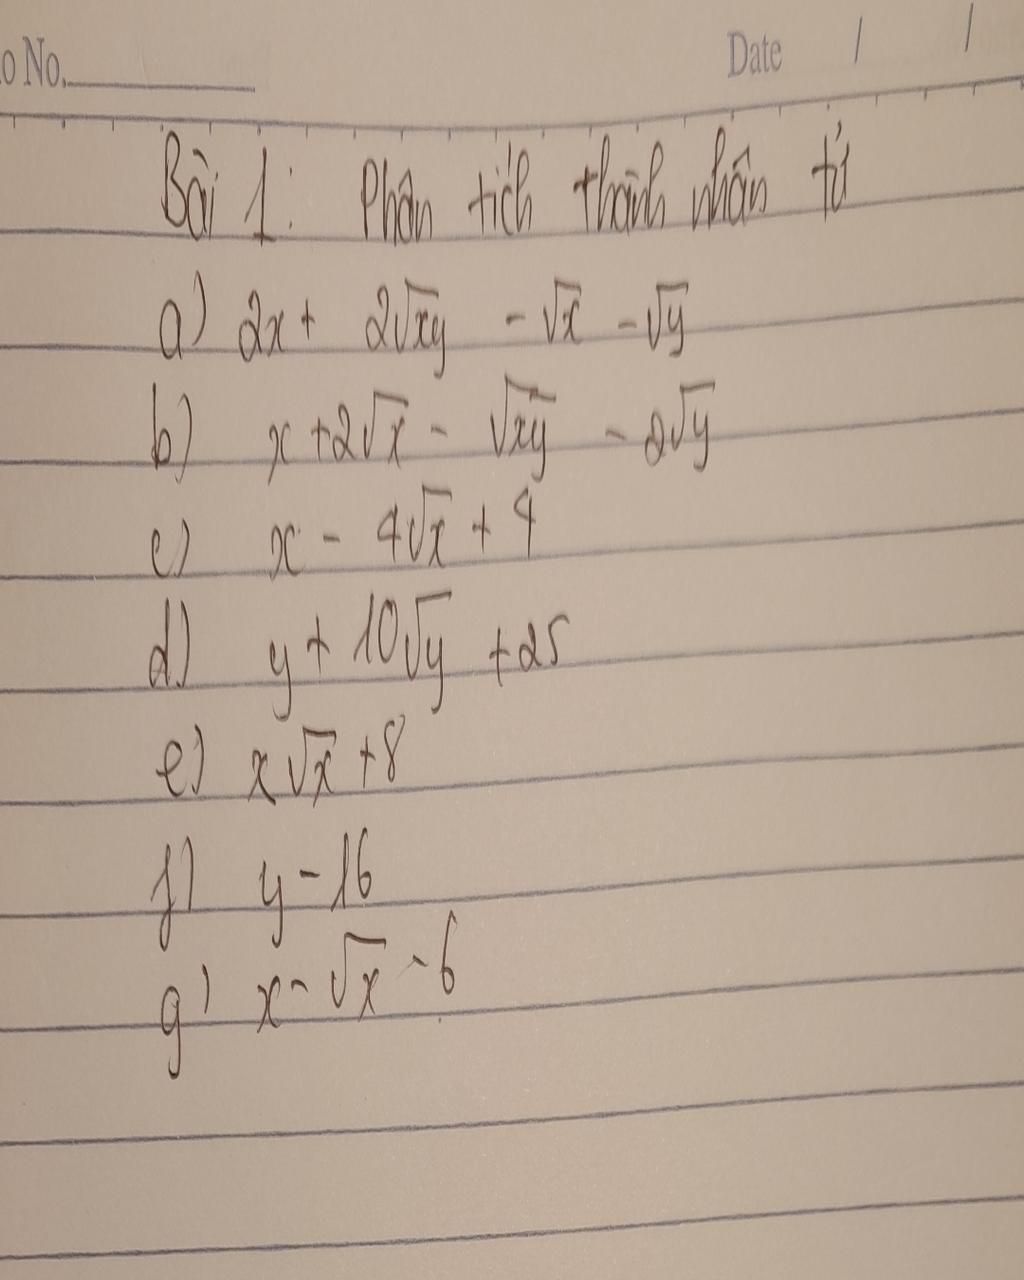 o No.
Date / /
Bài 1: Phân tích thành nhân tử
a) 2x + 2√xy - √x - √y
b) x + 2√x - √xy - 2√y
c) x - 4√x + 4
d) y + 10√y + 25
e) x√x + 8
f) y - 16
g) x - √x - 6